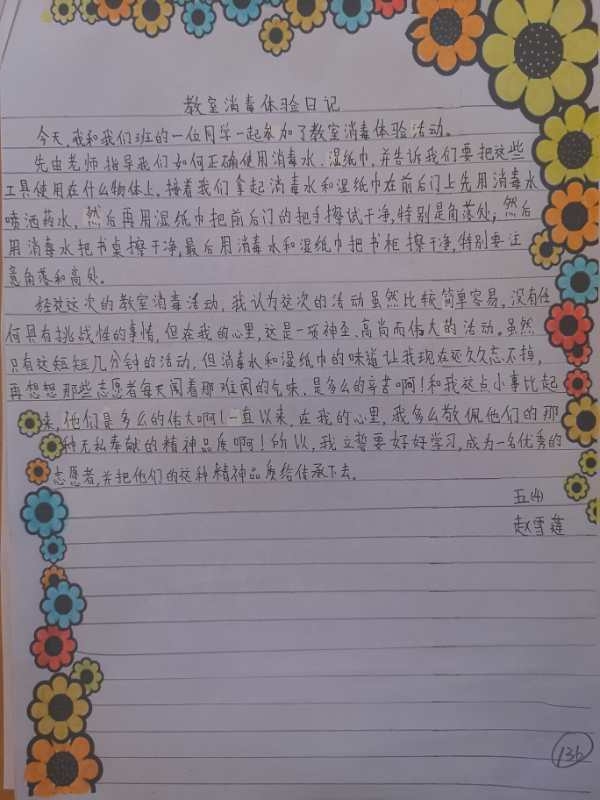 教室消毒体验日记
今天,我和我们班的一位同学一起参加了教室消毒体验活动。
先由老师指导我们如何正确使用消毒水、湿纸巾,并告诉我们要把这些
工具使用在什么物体上,接着我们拿起消毒水和湿纸巾在前后门上先用消毒水
喷洒药水,然后再用湿纸巾把前后门的把手擦试干净,特别是角落处;然后
用消毒水把书桌擦干净,最后用消毒水和湿纸巾把书柜擦干净,特别要注
意角落和高处。
经过这次的教室消毒活动,我认为这次的活动虽然比较简单容易,没有任
何具有挑战性的事情,但在我的心里,这是一项神圣、高尚而伟大的活动。虽然
只有这短短几分钟的活动,但消毒水和湿纸巾的味道让我现在还久久忘不掉,
再想想那些志愿者每天闻着那难闻的气味,是多么的辛苦啊!和我这点小事比起
来,他们是多么的伟大啊!一直以来,在我的心里,我多么敬佩他们的那
种无私奉献的精神品质啊!所以,我立誓要好好学习,成为一名优秀的
志愿者,并把他们的这种精神品质给传承下去。
五(4)
赵雪莲
136